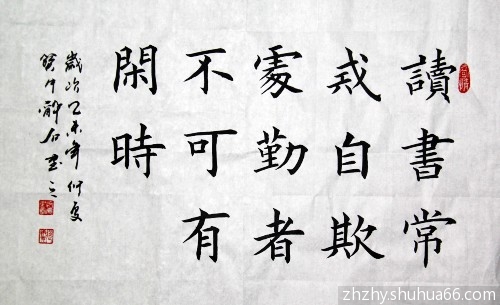 讀書常
戒自欺
處勤者
不可有
閑時
歲次乙未年仲夏
zhzhy.shuhua66.com